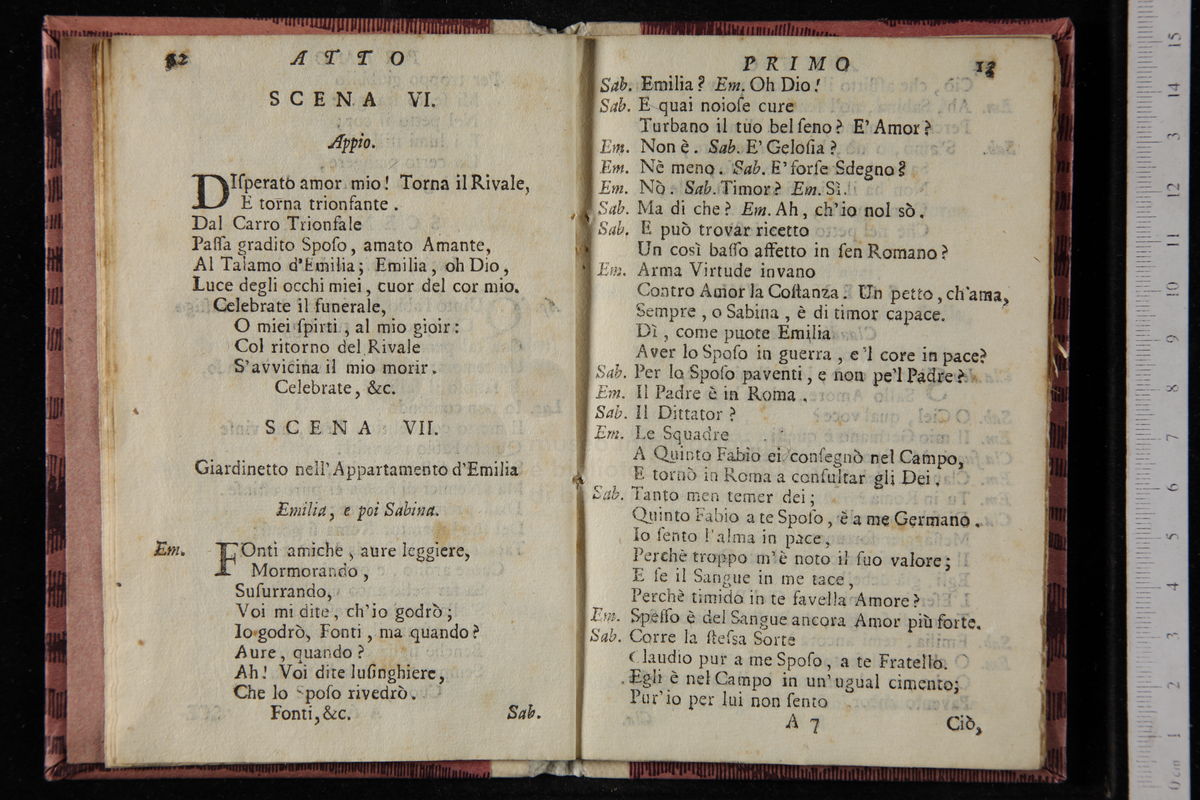 12 ATTO
SCENA VI.
Appio.
DIſperato amor mio! Torna il Rivale,
E torna trionfante.
Dal Carro Trionfale
Paſſa gradito Spoſo, amato Amante,
Al Talamo d'Emilia; Emilia, oh Dio,
Luce degli occhi miei, cuor del cor mio.
Celebrate il funerale,
O miei ſpirti, al mio gioir:
Col ritorno del Rivale
S'avvicina il mio morir.
Celebrate, &c.
SCENA VII.
Giardinetto nell'Appartamento d'Emilia
Emilia, e poi Sabina.
Em. FOnti amiche, aure leggiere,
Mormorando,
Suſurrando,
Voi mi dite, ch'io godrò;
Io godrò, Fonti, ma quando?
Aure, quando?
Ah! Voi dite luſinghiere,
Che lo Spoſo rivedrò.
Fonti, &c.
Sab.
PRIMO 13
Sab. Emilia? Em. Oh Dio!
Sab. E quai noioſe cure
Turbano il tuo bel ſeno? E' Amor?
Em. Non è. Sab. E' Geloſia?
Em. Nè meno. Sab. E' forſe Sdegno?
Em. Nò. Sab. Timor? Em. Sì.
Sab. Ma di che? Em. Ah, ch'io nol sò.
Sab. E può trovar ricetto
Un così baſſo affetto in ſen Romano?
Em. Arma Virtude invano
Contro Amor la Coſtanza. Un petto, ch'ama,
Sempre, o Sabina, è di timor capace.
Dì, come puote Emilia
Aver lo Spoſo in guerra, e'l core in pace?
Sab. Per lo Spoſo paventi, e non pe'l Padre?
Em. Il Padre è in Roma.
Sab. Il Dittator?
Em. Le Squadre
A Quinto Fabio ei conſegnò nel Campo,
E tornò in Roma a conſultar gli Dei.
Sab. Tanto men temer dei;
Quinto Fabio a te Spoſo, è a me Germano.
Io ſento l'alma in pace,
Perchè troppo m'è noto il ſuo valore;
E ſe il Sangue in me tace,
Perchè timido in te favella Amore?
Em. Speſſo è del Sangue ancora Amor più forte.
Sab. Corre la ſteſsa Sorte
Claudio pur a me Spoſo, a te Fratello.
Egli è nel Campo in un'ugual cimento;
Pur'io per lui non ſento
A 7
Ciò,